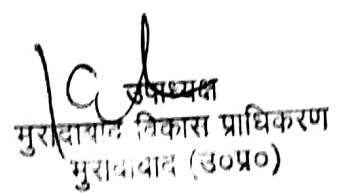 उपाध्यक्ष
मुरादाबाद विकास प्राधिकरण
मुरादाबाद (उ०प्र०)